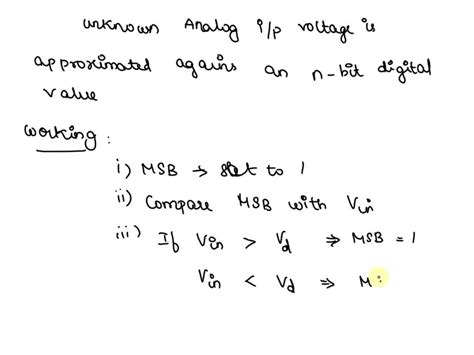 unknown Analog i/p voltage is
approximated agains an n-bit digital
value
Working :
i) MSB → set to 1
ii) Compare MSB with Vin
iii) If Vin > Vd ⇒ MSB = 1
Vin < Vd ⇒ M